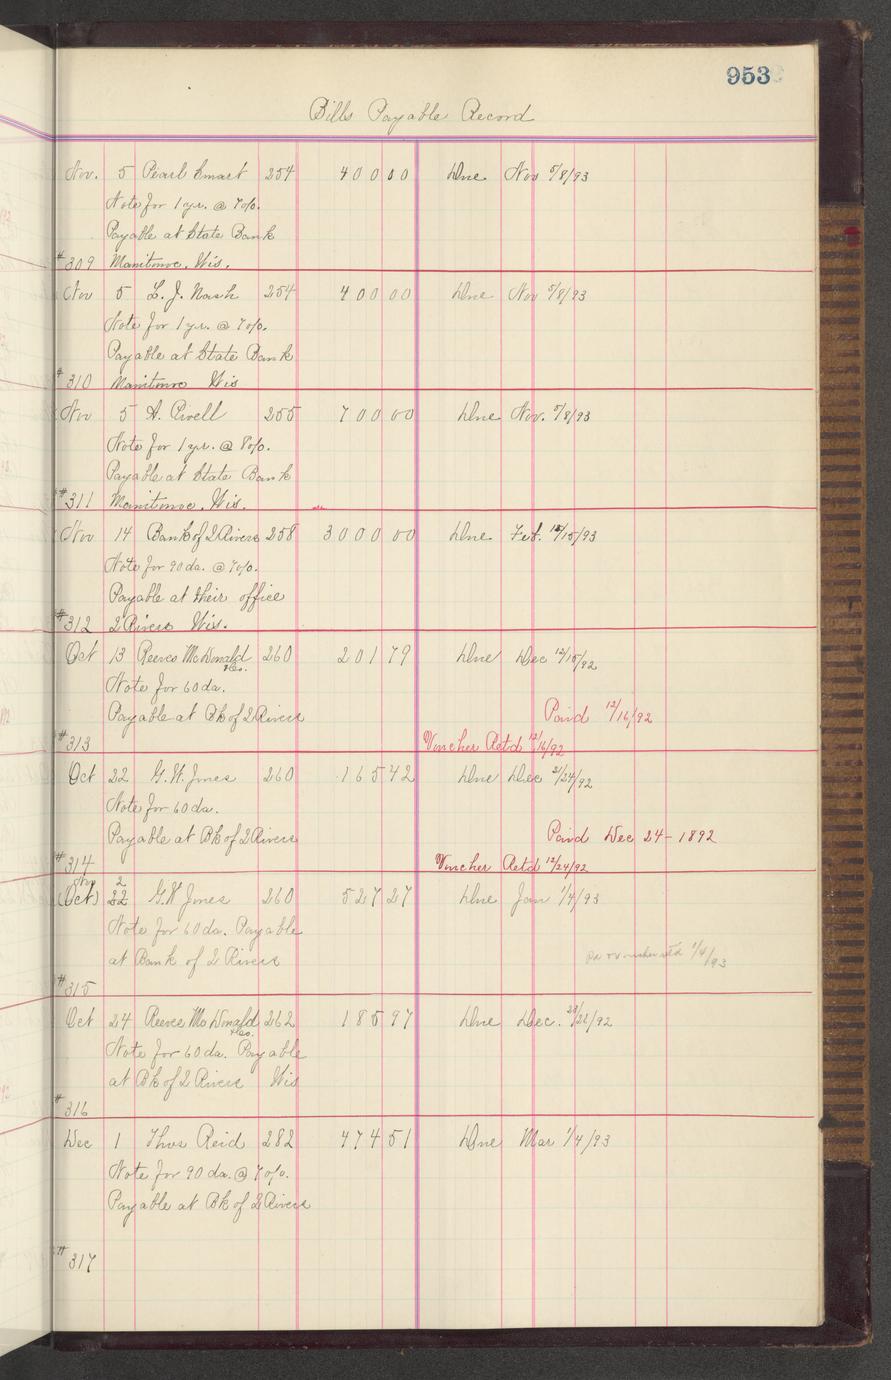 953
Bills Payable Record
Nov. 5 Pearl Smart 254 400 00 Due Nov 5/8/93
Note for 1 yr. @ 7%.
Payable at State Bank
#309 Manitowoc, Wis.
Nov 5 L. J. Nash 254 400 00 Due Nov 5/8/93
Note for 1 yr. @ 7%.
Payable at State Bank
#310 Manitowoc Wis
Nov 5 A. 255 700 00 Due Nov. 5/8/93
Note for 1 yr. @ 8%.
Payable at State Bank
#311 Manitowoc, Wis.
Nov 14 Bank of 2 Rivers 258 3000 00 Due Feb. 12/15/93
Note for 90 da. @ 7%.
Payable at their office
#312 2 Rivers Wis.
Oct 13 Reeves McDonald & Co. 260 201 79 Due Dec 12/15/92
Note for 60 da.
Payable at Bk of 2 Rivers Paid 12/16/92
#313 Voucher Retd 12/16/92
Oct 22 G. W. Jones 260 165 42 Due Dec 21/24/92
Note for 60 da.
Payable at Bk of 2 Rivers Paid Dec 24 - 1892
#314 Voucher Retd 12/24/92
Nov 2
(Oct) 22 G. W. Jones 260 527 27 Due Jan 1/4/93
Note for 60 da. Payable
at Bank of 2 Rivers Pd & voucher retd 1/4/93
#315
Oct 24 Reeves McDonald & Co. 262 185 97 Due Dec. 23/26/92
Note for 60 da. Payable
at Bk of 2 Rivers Wis
#316
Dec 1 Thos Reid 282 474 51 Due Mar 1/4/93
Note for 90 da. @ 7%.
Payable at Bk of 2 Rivers
#317